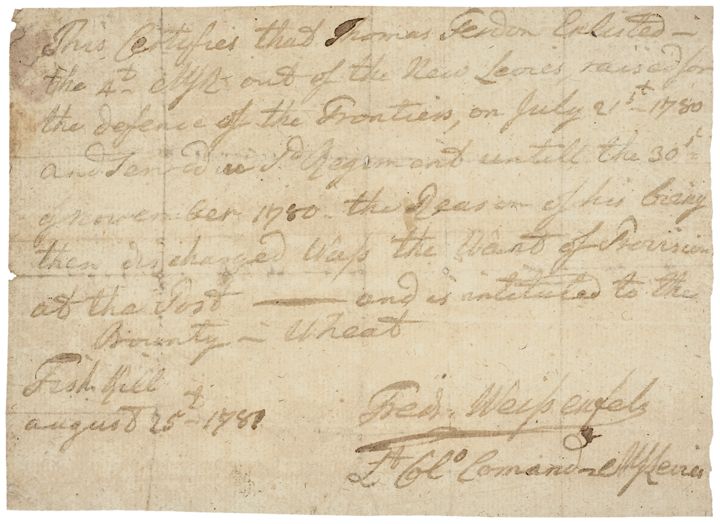 This Certifies that Thomas Ferdon Enlisted –
the 4t. NYR– out of the New Levies, raised for
the defence of the Frontiers, on July 21st– 1780
and Served in Sd. Regiment untill the 30t–
of November 1780 – the Reason of his being
then discharged Wass the Want of Provision
at the Post —— and is intituled to the
Bounty – Wheat
Fish Kill
august 25t– 1781
Fredr. Weissenfels
Lt. Colo Comandt NY Levies